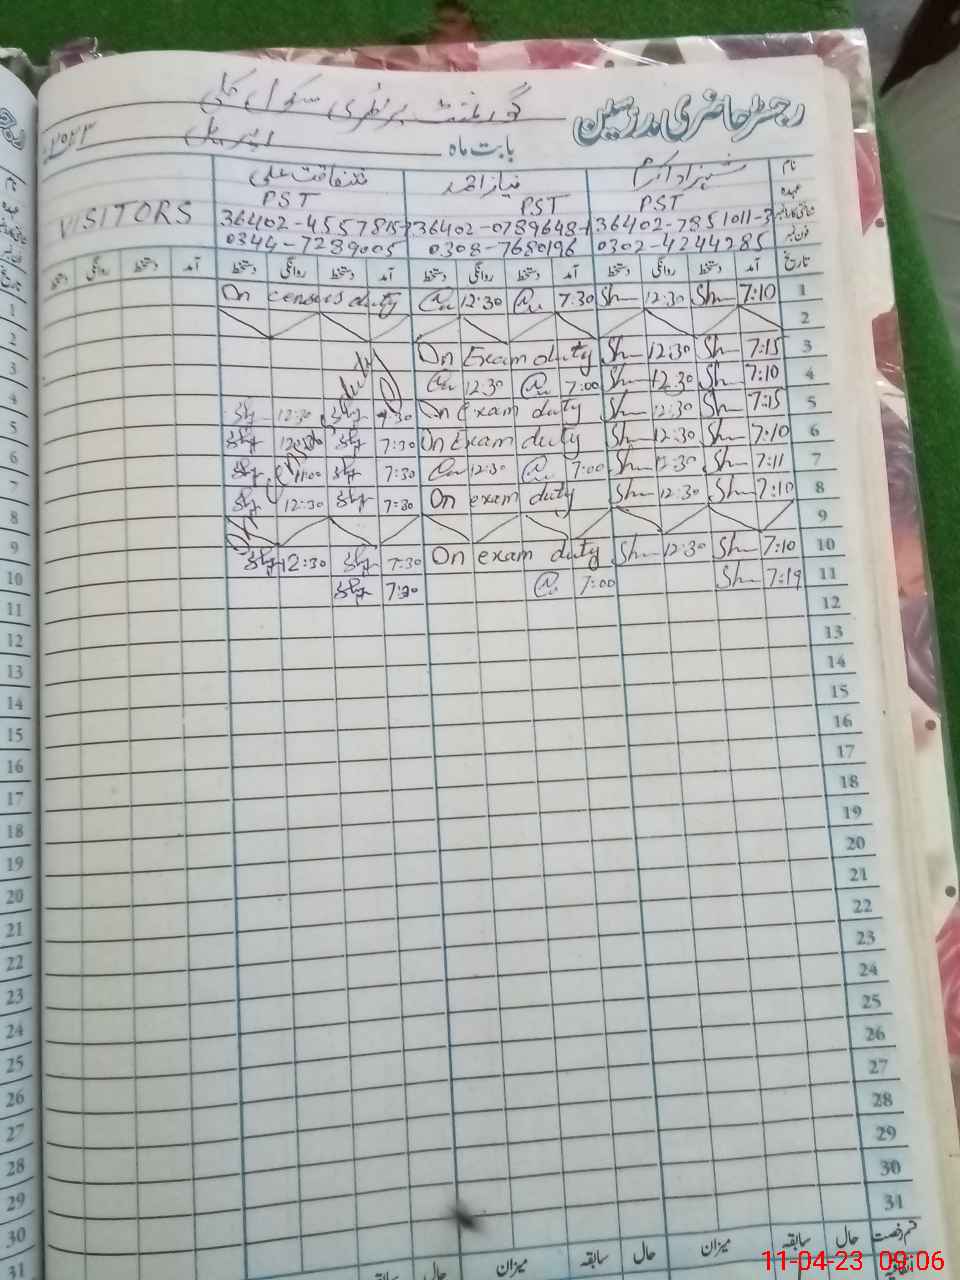 رجسٹر حاضری مدرسین گورنمنٹ پرائمری سکول
بابت ماہ اپریل ۲۰۲۳ء
نام شہزاد اکرم نیاز احمد شفاقت علی
عہدہ PST PST PST VISITORS
36402-7851011-3 36402-0789648-1
فون نمبر 0302-4244285 0308-7680196 0344-7289005
تاریخ آمد دستخط روانگی دستخط آمد دستخط روانگی دستخط آمد دستخط روانگی دستخط آمد دستخط روانگی دستخط
1 7:10 Sh 12:30 Sh 7:30 12:30 On census duty
2
3 7:15 Sh 12:30 Sh On Exam duty
4 7:10 Sh 12:30 Sh 7:00 12:30
5 7:15 Sh 12:30 Sh On exam duty 7:30 12:30
6 7:10 Sh 12:30 Sh On Exam duty 7:30
7 7:11 Sh 12:30 Sh 7:00 12:30 7:30 11:00
8 7:10 Sh 12:30 Sh On exam duty 7:30 12:30
9
10 7:10 Sh 12:30 Sh On exam duty 7:30 12:30
11 7:19 Sh 7:00
12
13
14
15
16
17
18
19
20
21
22
23
24
25
26
27
28
29
30
31
قسم رخصت حال سابقہ میزان حال سابقہ میزان حال سابقہ
اتفاقیہ
11-04-23 09:06